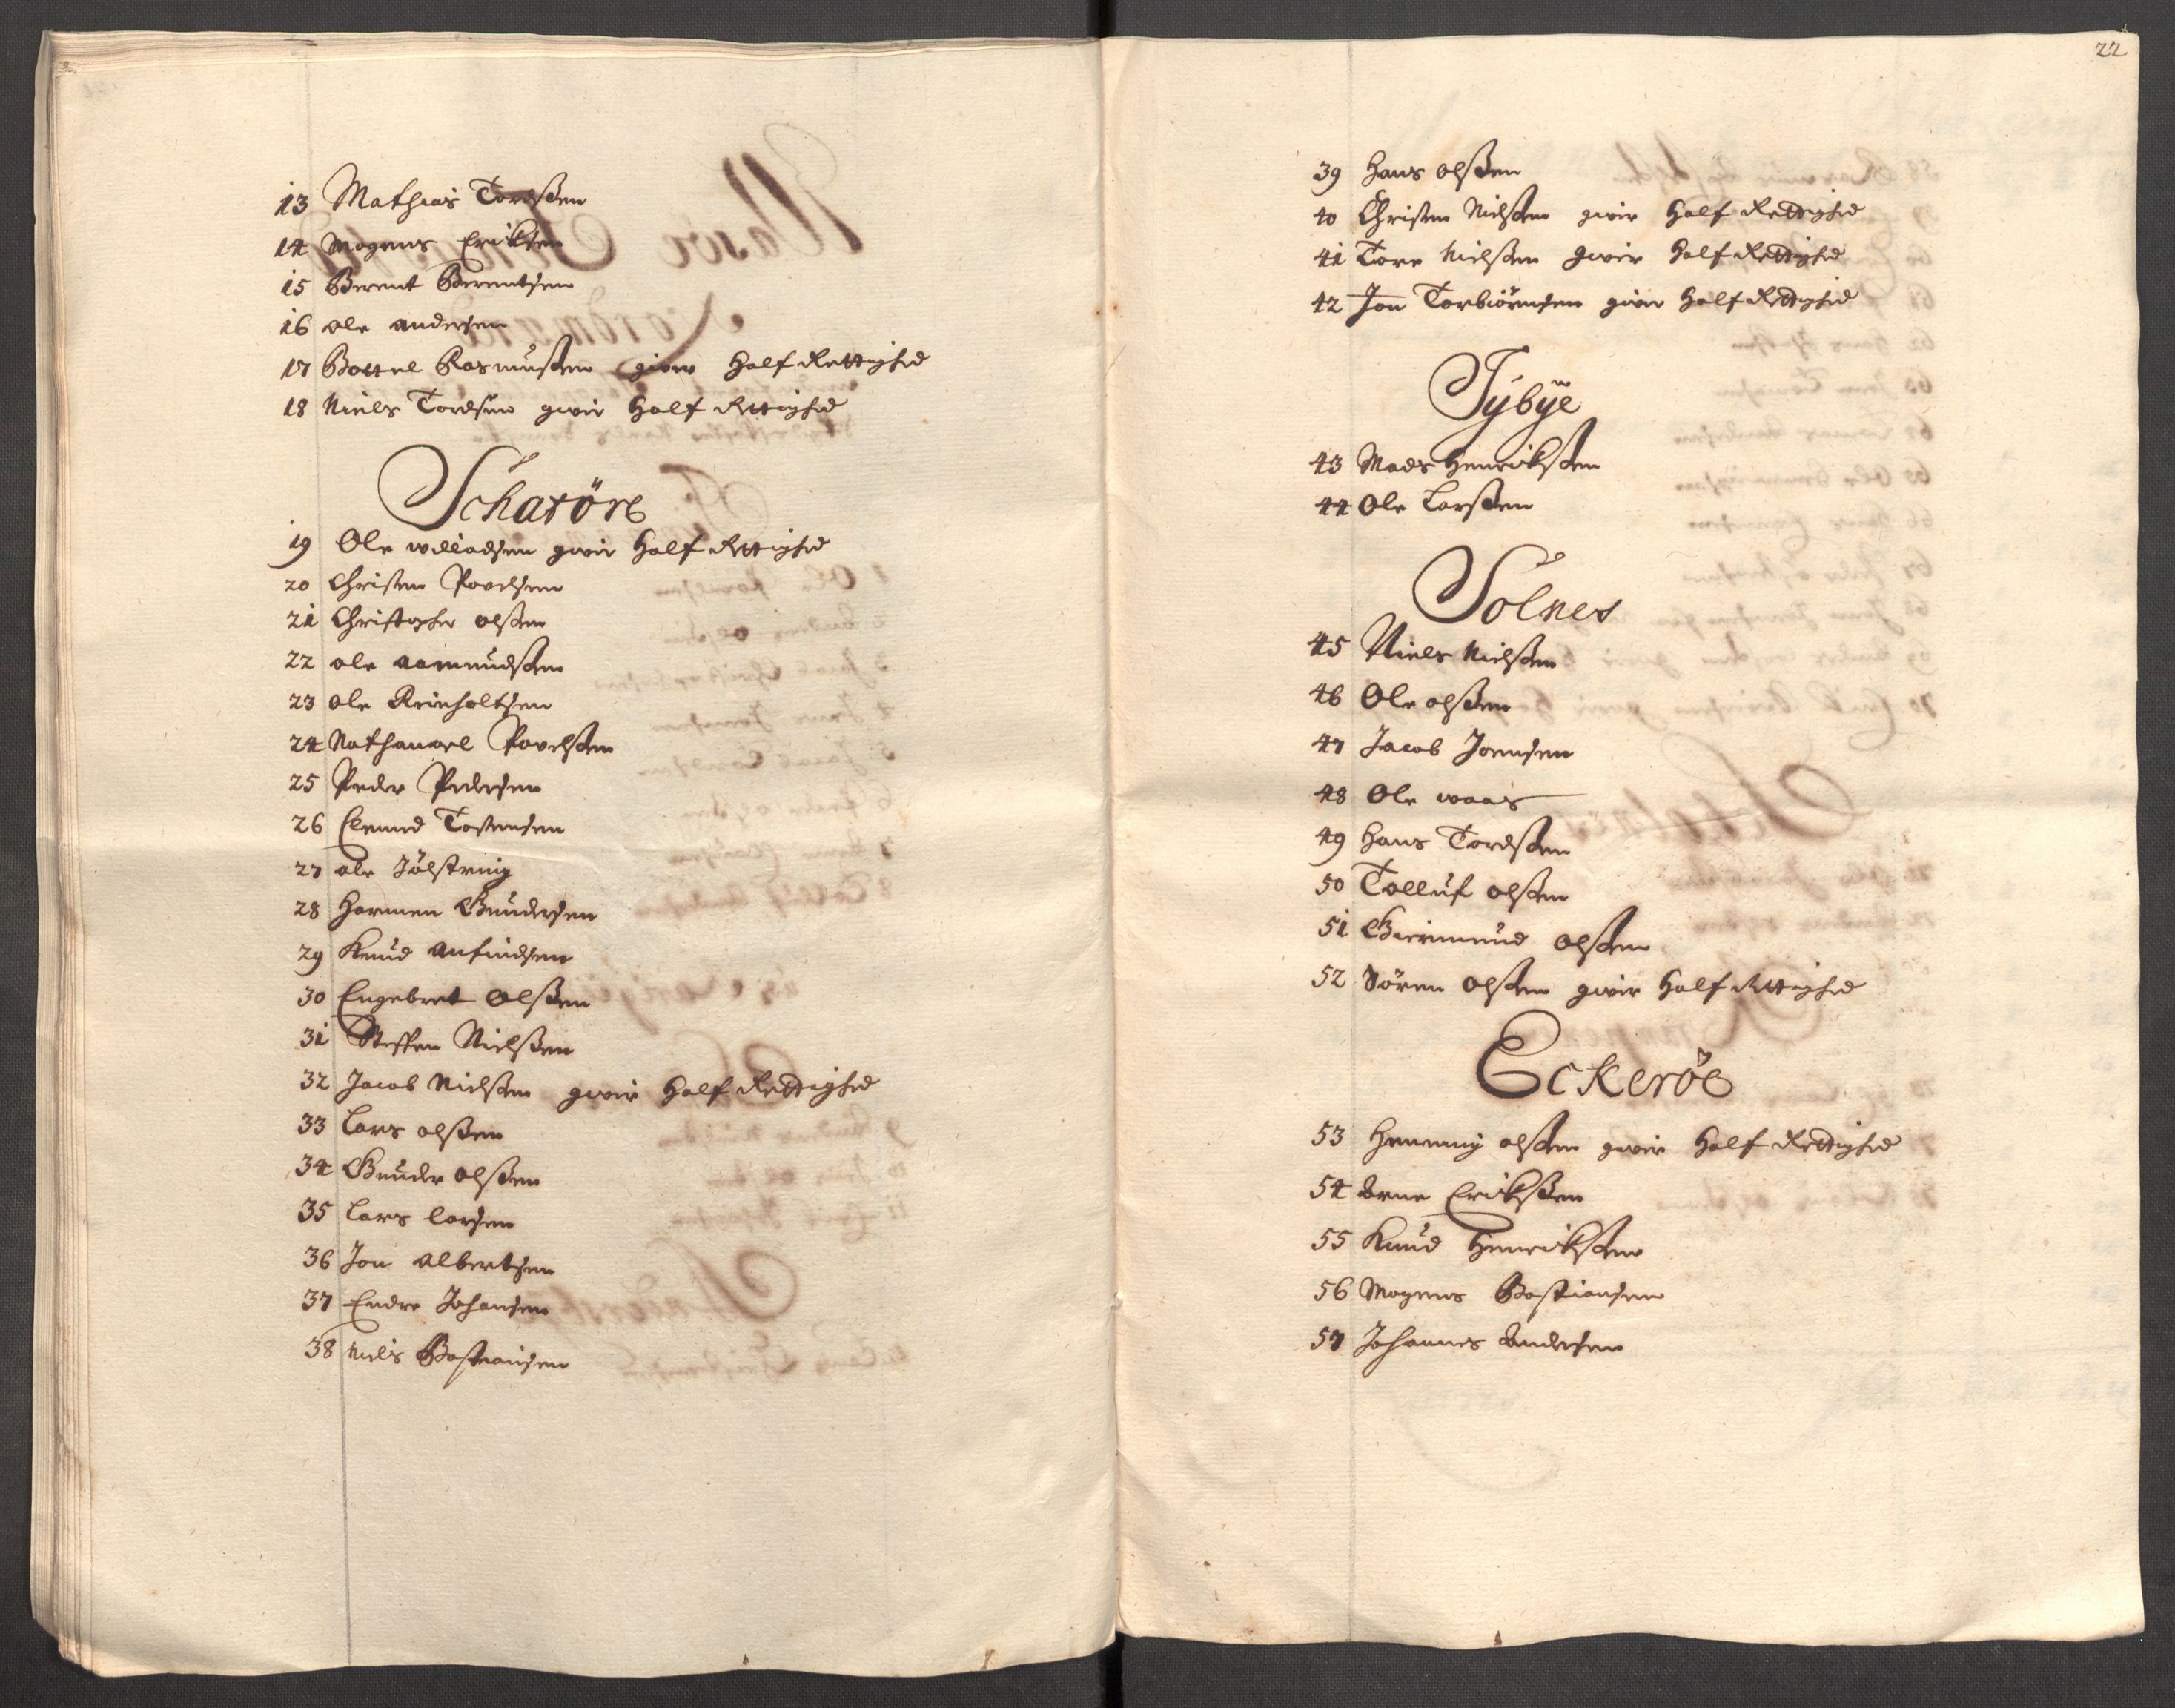 13 Mathias Tordsßen
14 Mogens Ericksen
15 Berent Berentsen
16 ole andersen
17 Bottel Rasmusßen giver Half Rettighed
18 Niels Tordsen giver Half Rettighed
Scharöre
19 Ole willadsen giver Half Rettighed
20 Christen Povelsen
21 Christopher olßen
22 ole aamundsßen
23 ole Reinholtsen
24 Nathanael Povelßen
25 Peder Pedersen
26 Elemed Tostensen
27 ole Jölstring
28 Harmen Gundersen
29 Knud anfindsen
30 Engebret Olßen
31 Steffen Nielßen
32 Jacob Nielßen giver Half Rettighed
33 Lars olßen
34 Gunder olßen
35 Lars larsen
36 Jon albertsen
37 Endre Johansen
38 Niels Bastiansen
22
39 Hans olßen
40 Christen Nielßen giver Half Rettighed
41 Tore Nielßen giver Half Rettighed
42 Jon Torbiörnsen giver Half Rettighed
Tybye
43 Mads Henrickßen
44 Ole Larßen
Solnes
45 Niels Nielßen
46 Ole olßen
47 Jacob Joensen
48 Ole waas
49 Hans Tordßen
50 Tolluf olßen
51 Geirmund olßen
52 Sören olßen giver Half Rettighed
Eckeröe
53 Hemming olßen giver Half Rettighed
54 Arne Erickßen
55 Knud Henrickßen
56 Mogens Bastiansen
57 Johannes Andersen